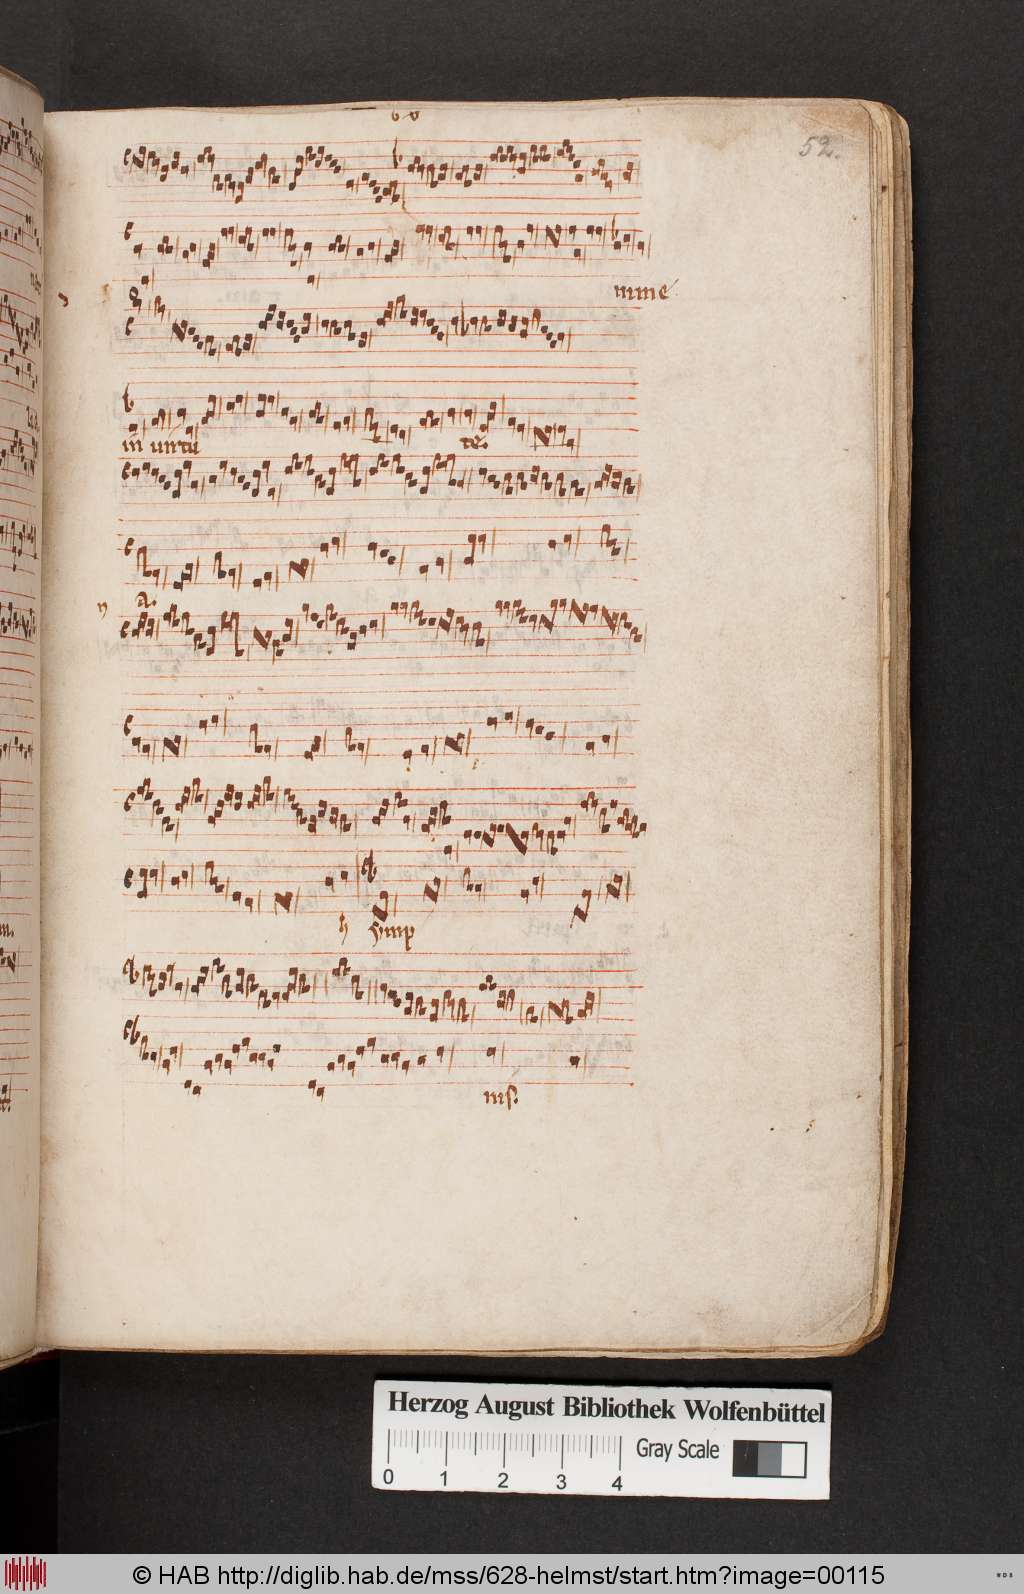 52.
mine
in uirtu te.
a.
ymp
nis.
Herzog August Bibliothek Wolfenbüttel
Gray Scale
0 1 2 3 4
© HAB http://diglib.hab.de/mss/628-helmst/start.htm?image=00115